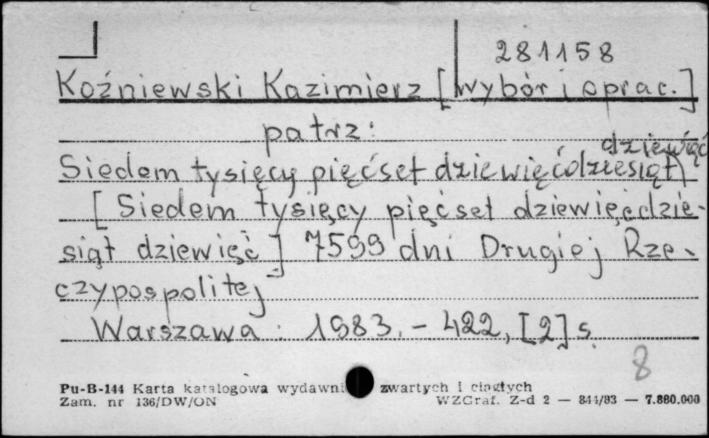 281158
Koźniewski Kazimierz [Wybór i oprac.]
patrz:
dziewięć
Siedem tysięcy pięćset dziewięćdziesiąt
[Siedem tysięcy pięćset dziewięćdzie-
siąt dziewięć] 7599 dni Drugiej Rze-
czypospolitej
Warszawa 1983. - 422, [2] s.
8
Pu-B-144 Karta katalogowa wydawni zwartych i ciągłych
Zam. nr 136/DW/ON WZGraf. Z-d 2 — 844/83 — 7.880.000